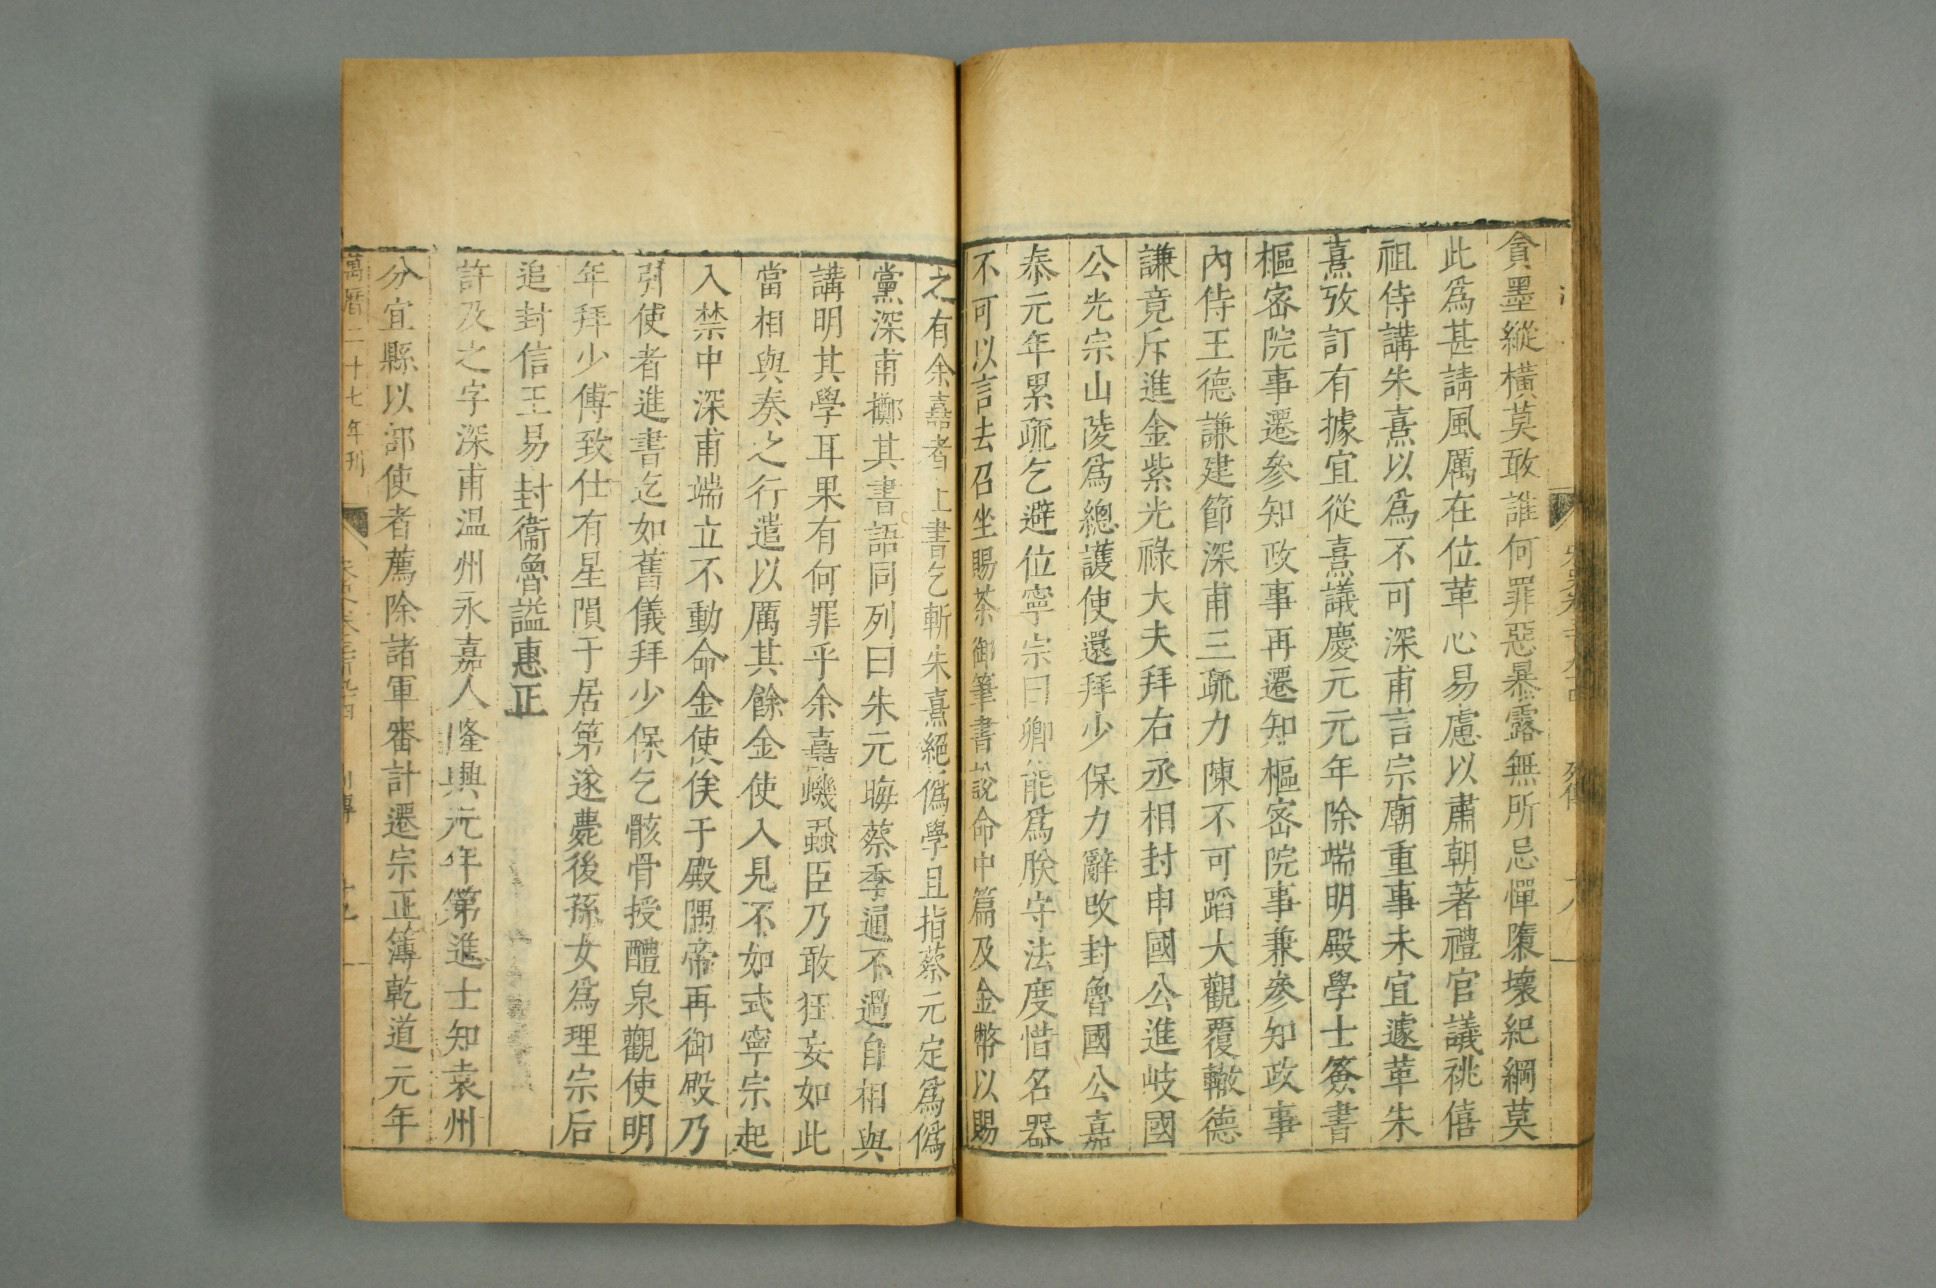 貪墨縱橫莫敢誰何罪惡暴露無所忌憚隳壞紀綱莫
此爲甚請風厲在位革心易慮以肅朝著禮官議祧僖
祖侍講朱熹以爲不可深甫言宗廟重事未宜遽革朱
熹攷訂有據宜從熹議慶元元年除端明殿學士簽書
樞密院事遷參知政事再遷知樞密院事兼參知政事
內侍王德謙建節深甫三疏力陳不可蹈大觀覆轍德
謙竟斥進金紫光祿大夫拜右丞相封申國公進岐國
公光宗山陵爲總護使還拜少保力辭改封魯國公嘉
泰元年累疏乞避位寧宗曰卿能爲朕守法度惜名器
不可以言去召坐賜茶御筆書說命中篇及金幣以賜
之有余嚞者上書乞斬朱熹絕僞學且指蔡元定爲僞
黨深甫擲其書語同列曰朱元晦蔡季通不過自相與
講明其學耳果有何罪乎余嚞蟣蝨臣乃敢狂妄如此
當相與奏之行遣以厲其餘金使入見不如式寧宗起
入禁中深甫端立不動命金使俟于殿隅帝再御殿乃
引使者進書迄如舊儀拜少保乞骸骨授醴泉觀使明
年拜少傅致仕有星隕于居第遂薨後孫女爲理宗后
追封信王易封衞魯謚惠正
許及之字深甫温州永嘉人隆興元年第進士知袁州
分宜縣以部使者薦除諸軍審計遷宗正簿乾道元年
萬曆二十七年刊
宋史卷三百九十四 列傳 十九